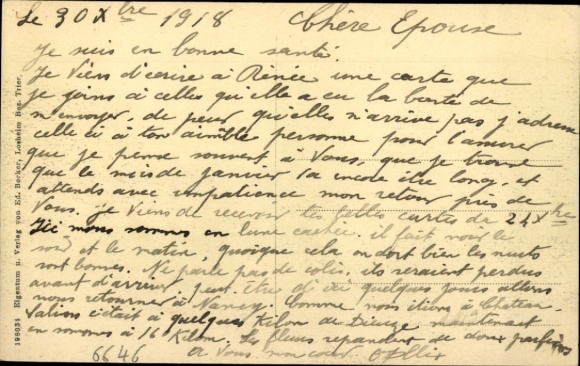 Le 30 Xbre 1918 Chère Epouse
Je suis en bonne santé.
Je Viens d'écrire à Renée une carte que
je joins à celles qu'elle a eu la bonté de
m'envoyer, de peur qu'elles n'arrive pas j'adresse
celle ci à ton aimble personne pour l'assurer
que je pense souvent à Vous, que je trouve
que le mois de janvier va encore être long, et
attends avec impatience mon retour près de
Vous. je Viens de recevoir tes belles cartes de 24 Xbre
Ici nous sommes en lune cachée. il fait noir le
soir et le matin, quoique cela on dort bien les nuits
sont bonnes. Ne parle pas de colis, ils seraient perdus
avant d'arriver, peut être d'ici quelques jours allons
nous retourner à Nancy. Comme nous étions à Chateau
Salins c'était à quelques Kilom de Dieuze maintenant
en sommes à 16 Kilom. Les fleurs repandent de doux parfums
A Vous mon cœur.
6646
198035 Eigentum u. Verlag von Ed. Becker, Losheim Bez. Trier.